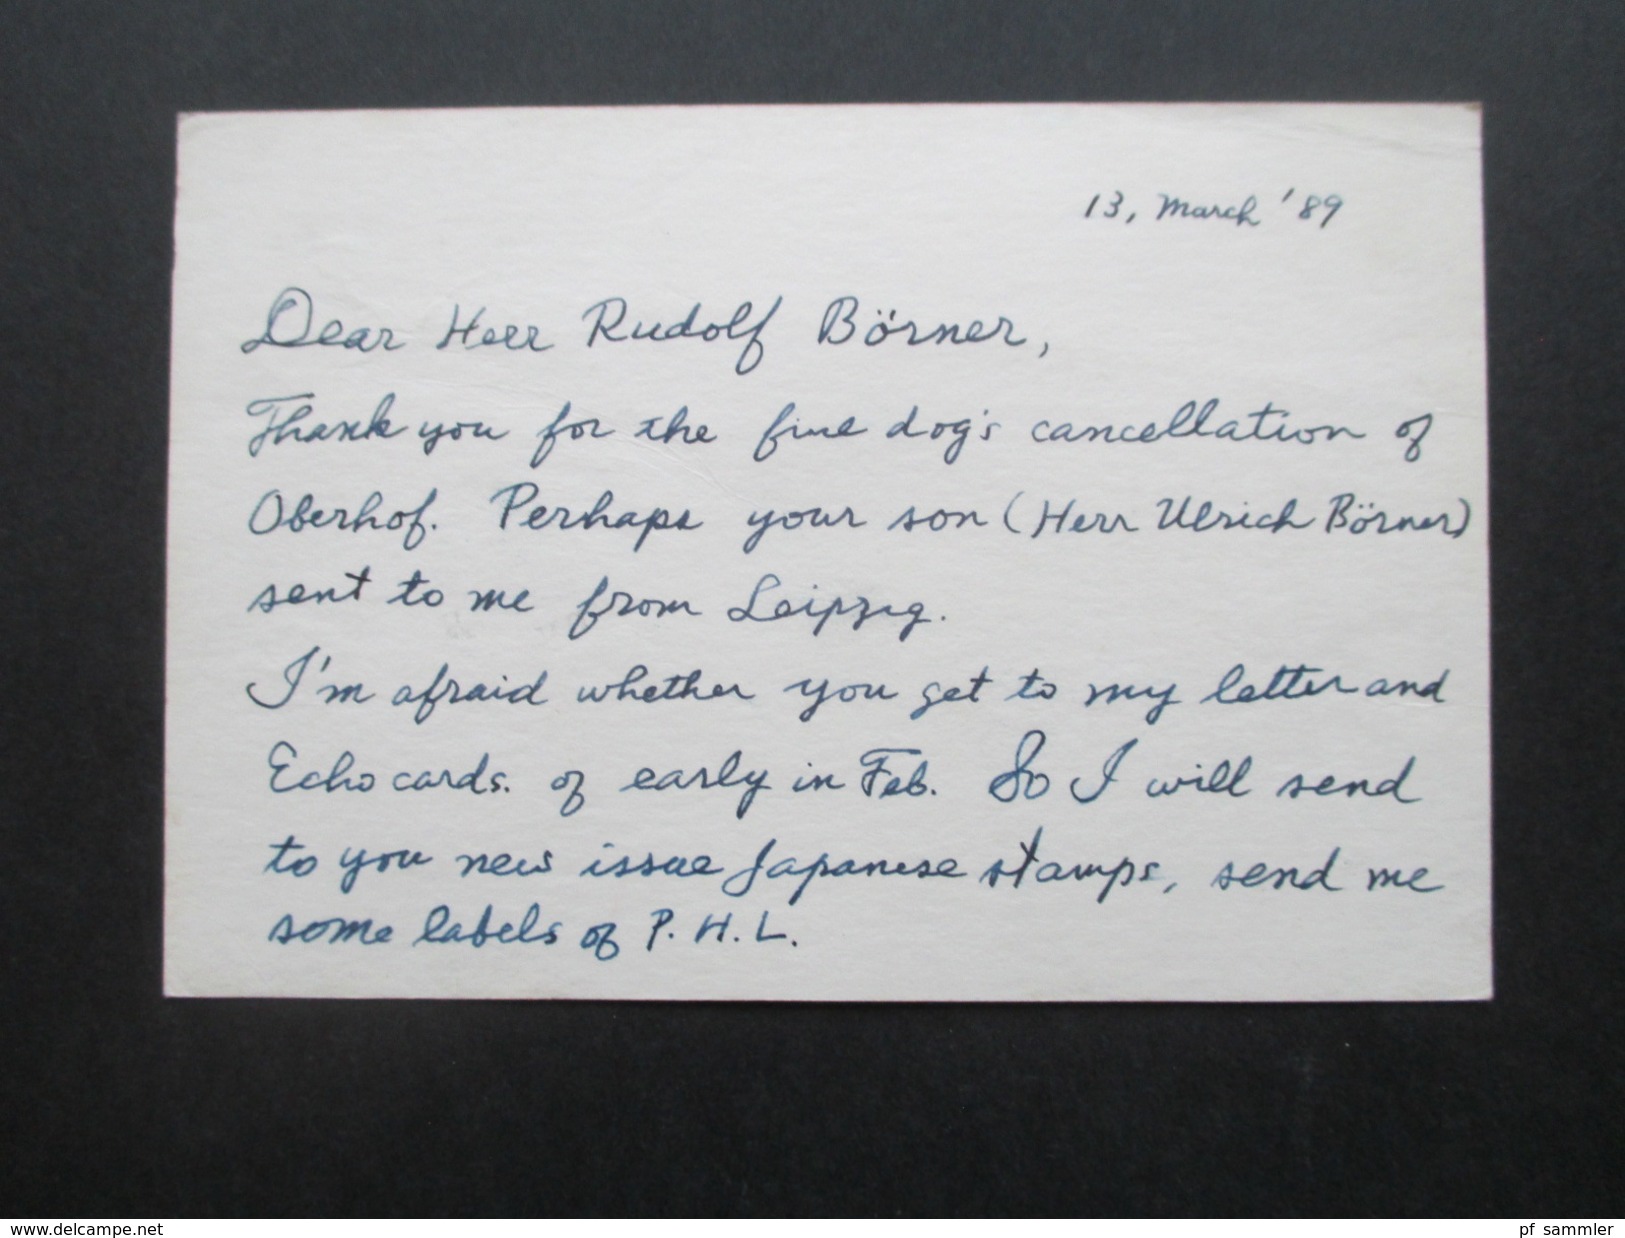 13, March '89
Dear Herr Rudolf Börner,
Thank you for the fine dog's cancellation of
Oberhof. Perhaps your son (Herr Ulrich Börner)
sent to me from Leipzig.
I'm afraid whether you get to my letter and
Echo cards. of early in Feb. So I will send
to you new issue Japanese stamps, send me
some labels of P. H. L.
www.delcampe.net
pf_sammler